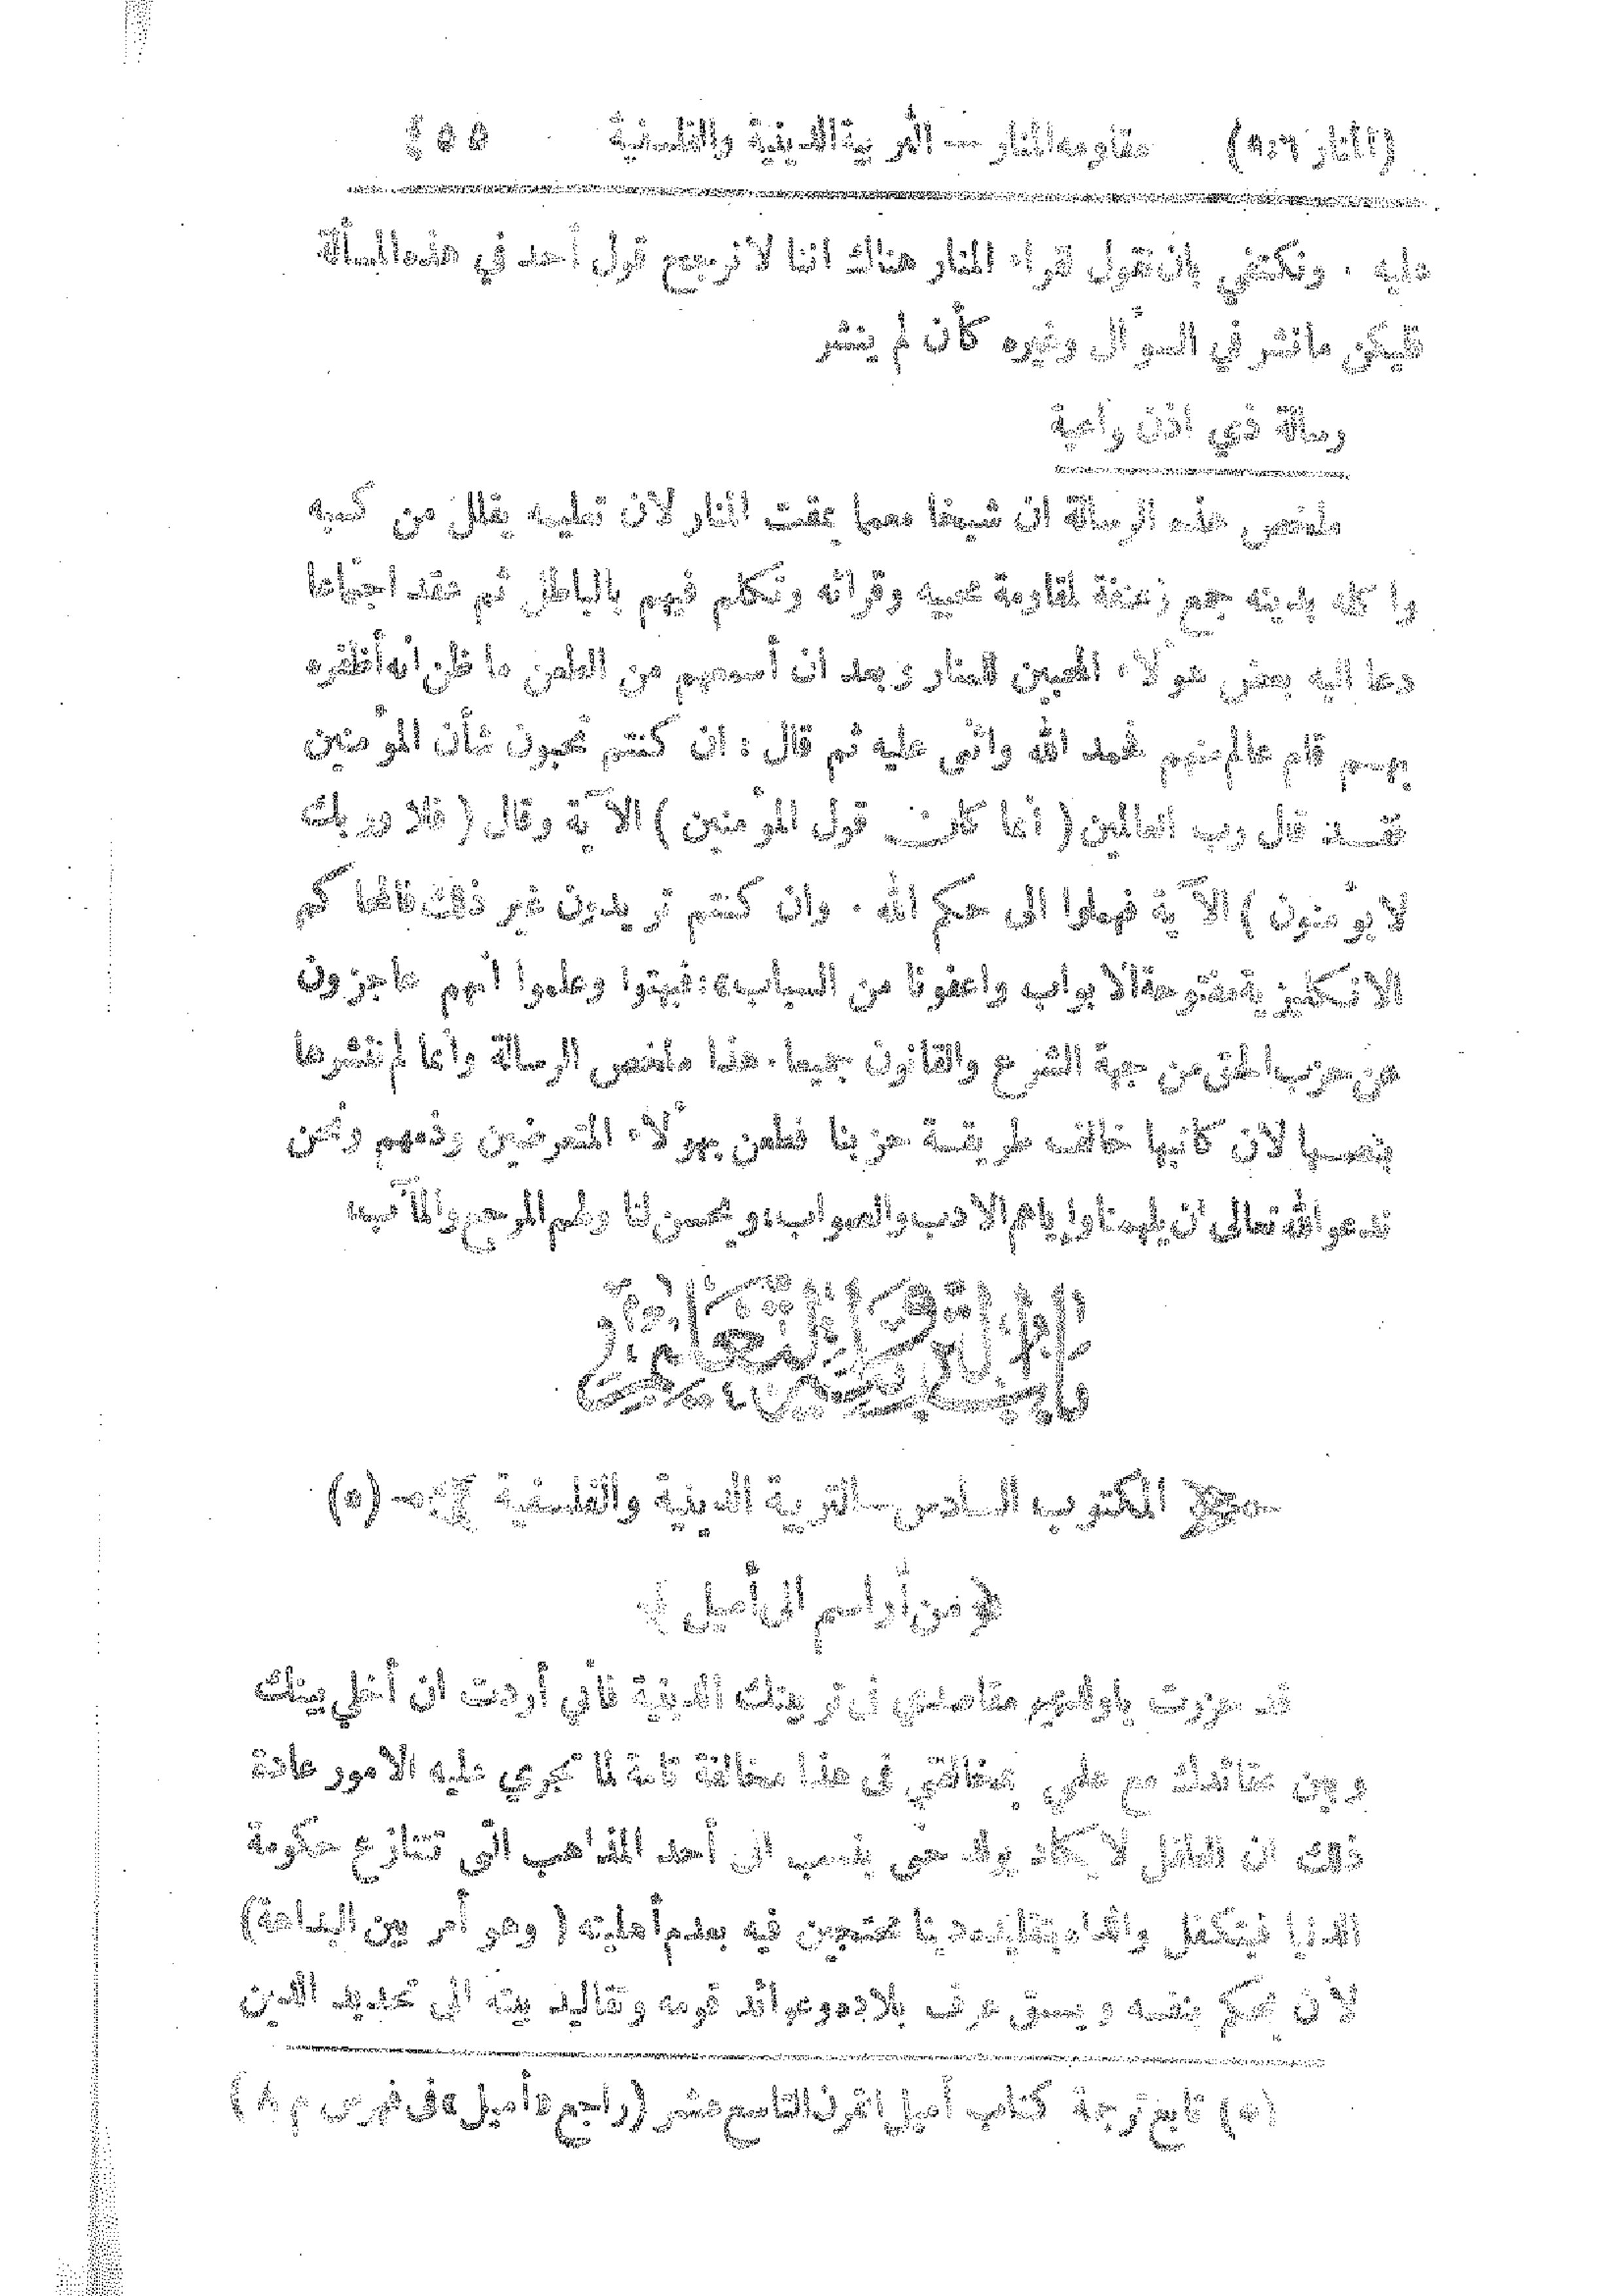 (المنار ٩:٦) مقاومه المنار — التربية الدينية والفلسفية ٤٥٥
عليه . ونكتفي بان نقول لقراء المنار هناك اننا لا نرجح قول أحد في هذه المسألة
فليكن ما نشر في السؤال وغيره كأن لم ينشر
رسالة ذي اذن واعية
ملخص هذه الرسالة ان شيخا معمما يمقت المنار لان تعليمه يقلل من كسبه
وا كله بدينه جمع زعنفة لمقاومة محبيه وقرائه وتكلم فيهم بالباطل ثم عقد اجتماعا
دعا اليه بعض هؤلاء المحبين للمنار وبعد ان أسمعهم من الطعن ما ظن انه أظفره
بهم قام عالم منهم فحمد الله واثنى عليه ثم قال : ان كنتم تحبون شأن المؤمنين
فقد قال رب العالمين ( أنما كان قول المؤمنين ) الآية وقال ( فلا وربك
لا يؤمنون ) الآية فهلموا الى حكم الله . وان كنتم تريدون غير ذلك فالمحاكم
الانكليزية مفتوحة الابواب واعفونا من السباب» : فبهتوا وعلموا أنهم عاجزون
عن حزب الحق من جهة الشرع والقانون جميعا . هذا ملخص الرسالة وأنما لم ننشرها
بنصها لان كاتبها خالف طريقة حزبنا فطعن بهؤلاء المتعرضين وذمهم ونحن
ندعو الله تعالى ان يلهمنا واياهم الادب والصواب، ويحسن لنا ولهم المرجع والمآب،
المكتوب السادس — التربية الدينية والفلسفية (*)
﴿ من أراسم الى أميل ﴾
قد حررت يا ولدي مقاصدي في تربيتك الدينية فأني أردت ان أخلي بينك
وبين عقائدك مع علمي بمخالفتي في هذا مخالفة تامة لما تجري عليه الامور عادة
ذلك ان الطفل لا يكاد يولد حتى ينسب الى أحد المذاهب التي تتنازع حكومة
الدنيا فيتكفل والداه بتقليده دينا محتجين فيه بعدم أهليته ( وهو أمر بين البداهة)
لأن يحكم بنفسه ويسبق عرف بلاده وعوائد قومه وتقاليد بيته الى تحديد الدين
(*) تابع ترجمة كتاب أميل القرن التاسع عشر (راجع «أميل» في فهرس م ٨)